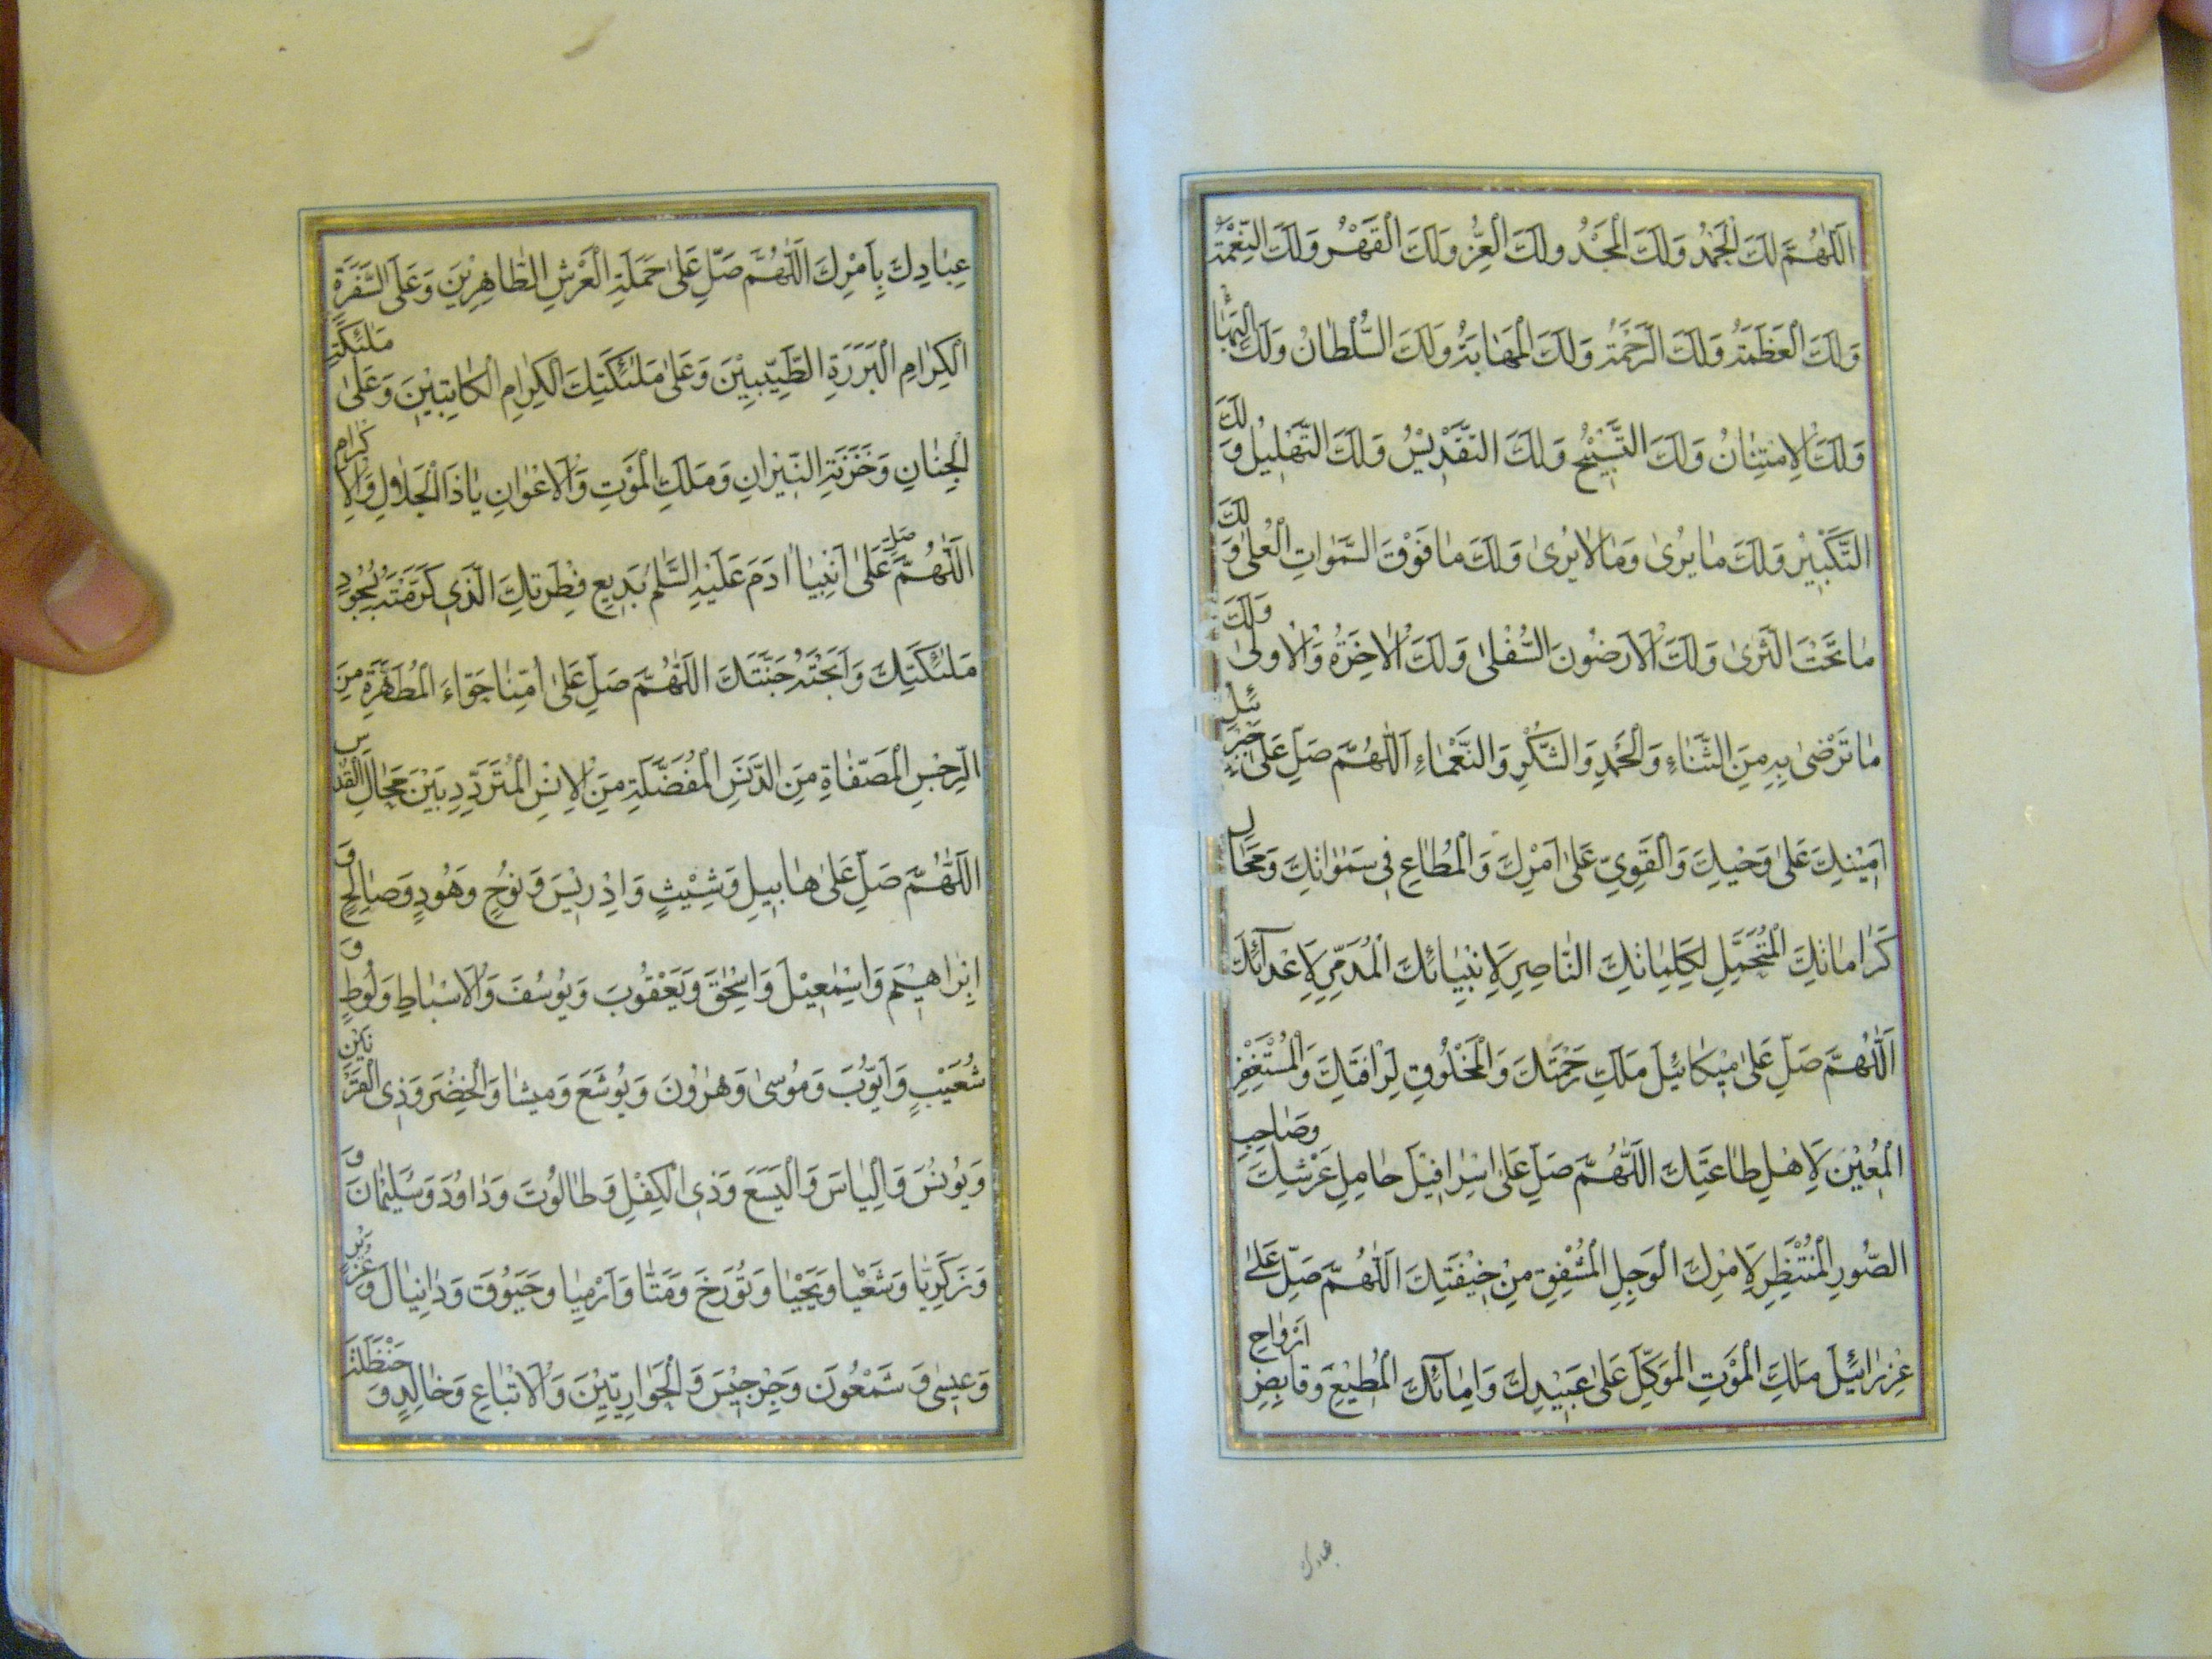 اَللّٰهُمَّ لَكَ الْحَمْدُ وَلَكَ الْمَجْدُ وَلَكَ الْعِزُّ وَلَكَ الْقَهْرُ وَلَكَ النِّعْمَةُ
وَلَكَ الْعَظَمَةُ وَلَكَ الرَّحْمَةُ وَلَكَ الْمَهَابَةُ وَلَكَ السُّلْطَانُ وَلَكَ الْبَهَاءُ
وَلَكَ الْاِمْتِنَانُ وَلَكَ التَّسْبِيْحُ وَلَكَ التَّقْدِيْسُ وَلَكَ التَّهْلِيْلُ وَلَكَ
التَّكْبِيْرُ وَلَكَ مَا يُرىٰ وَمَا لَا يُرىٰ وَلَكَ مَا فَوْقَ السَّمٰوَاتِ الْعُلىٰ وَلَكَ
مَا تَحْتَ الثَّرىٰ وَلَكَ الْاَرَضُونَ السُّفْلىٰ وَلَكَ الْاٰخِرَةُ وَالْاُولىٰ وَلَكَ
مَا تَرْضىٰ بِهِ مِنَ الثَّنَاءِ وَالْحَمْدِ وَالشُّكْرِ وَالنَّعْمَاءِ اَللّٰهُمَّ صَلِّ عَلىٰ جَبْرَئِيلَ
اَمِيْنِكَ عَلىٰ وَحْيِكَ وَالْقَوِيِّ عَلىٰ اَمْرِكَ وَالْمُطَاعِ فِى سَمٰوَاتِكَ وَمَحَالِّ
كَرَامَاتِكَ الْمُتَحَمِّلِ لِكَلِمَاتِكَ النَّاصِرِ لِاَنْبِيَائِكَ الْمُدَمِّرِ لِاَعْدَآئِكَ
اَللّٰهُمَّ صَلِّ عَلىٰ مِيْكَائِيلَ مَلَكِ رَحْمَتِكَ وَالْمَخْلُوقِ لِرَاْفَتِكَ وَالْمُسْتَغْفِرِ
الْمُعِيْنِ لِاَهْلِ طَاعَتِكَ اَللّٰهُمَّ صَلِّ عَلىٰ اِسْرَافِيْلَ حَامِلِ عَرْشِكَ وَصَاحِبِ
الصُّورِ الْمُنْتَظِرِ لِاَمْرِكَ الْوَجِلِ الْمُشْفِقِ مِنْ خِيْفَتِكَ اَللّٰهُمَّ صَلِّ عَلىٰ
عِزْرَائِيلَ مَلَكِ الْمَوْتِ الْمُوَكَّلِ عَلىٰ عَبِيْدِكَ وَاِمَائِكَ الْمُطِيْعِ وَقَابِضِ اَرْوَاحِ
عبادك
عِبَادِكَ بِاَمْرِكَ اَللّٰهُمَّ صَلِّ عَلىٰ حَمَلَةِ الْعَرْشِ الطَّاهِرِيْنَ وَعَلَى السَّفَرَةِ
الْكِرَامِ الْبَرَرَةِ الطَّيِّبِيْنَ وَعَلىٰ مَلٰئِكَتِكَ الْكِرَامِ الْكَاتِبِيْنَ وَعَلىٰ مَلٰئِكَةِ
الْجِنَانِ وَخَزَنَةِ النِّيْرَانِ وَمَلَكِ الْمَوْتِ وَالْاَعْوَانِ يَا ذَا الْجَلَالِ وَالْاِكْرَامِ
اَللّٰهُمَّ صَلِّ عَلىٰ اَبِيْنَا اٰدَمَ عَلَيْهِ السَّلٰمُ بَدِيعِ فِطْرَتِكَ الَّذِي كَرَّمْتَهُ بِسُجُودِ
مَلٰئِكَتِكَ وَاَبَحْتَهُ جَنَّتَكَ اَللّٰهُمَّ صَلِّ عَلىٰ اُمِّنَا حَوَّاءَ الْمُطَهَّرَةِ مِنَ
الرِّجْسِ الْمُصَفَّاةِ مِنَ الدَّنَسِ الْمُفَضَّلَةِ مِنَ الْاِنْسِ الْمُتَرَدِّدِ بَيْنَ مَحَالِّ الْقُدْسِ
اَللّٰهُمَّ صَلِّ عَلىٰ هَابِيلِ وَشِيْثٍ وَاِدْرِيْسَ وَنُوحٍ وَهُودٍ وَصَالِحٍ وَ
اِبْرَاهِيْمَ وَاِسْمٰعِيْلَ وَاِسْحٰقَ وَيَعْقُوبَ وَيُوسُفَ وَالْاَسْبَاطِ وَلُوطٍ وَ
شُعَيْبٍ وَاَيُّوبَ وَمُوسىٰ وَهٰرُونَ وَيُوشَعَ وَمِيشَا وَالْخِضْرِ وَذِى الْقَرْنَيْنِ
وَيُونُسَ وَاِلْيَاسَ وَالْيَسَعَ وَذِى الْكِفْلِ وَطَالُوتَ وَدَاوُدَ وَسُلَيْمَانَ وَ
وَزَكَرِيَّا وَشَعْيَا وَيَحْيىٰا وَتُورَخَ وَمَتّٰا وَاَرْمِيَا وَحَيَوُقَ وَدَانِيَالَ وَعُزَيْرٍ
وَعِيسٰى وَشَمْعُونَ وَجِرْجِيْسَ وَالْحَوَارِيِّيْنَ وَالْاَتْبَاعِ وَخَالِدٍ وَحَنْظَلَةَ